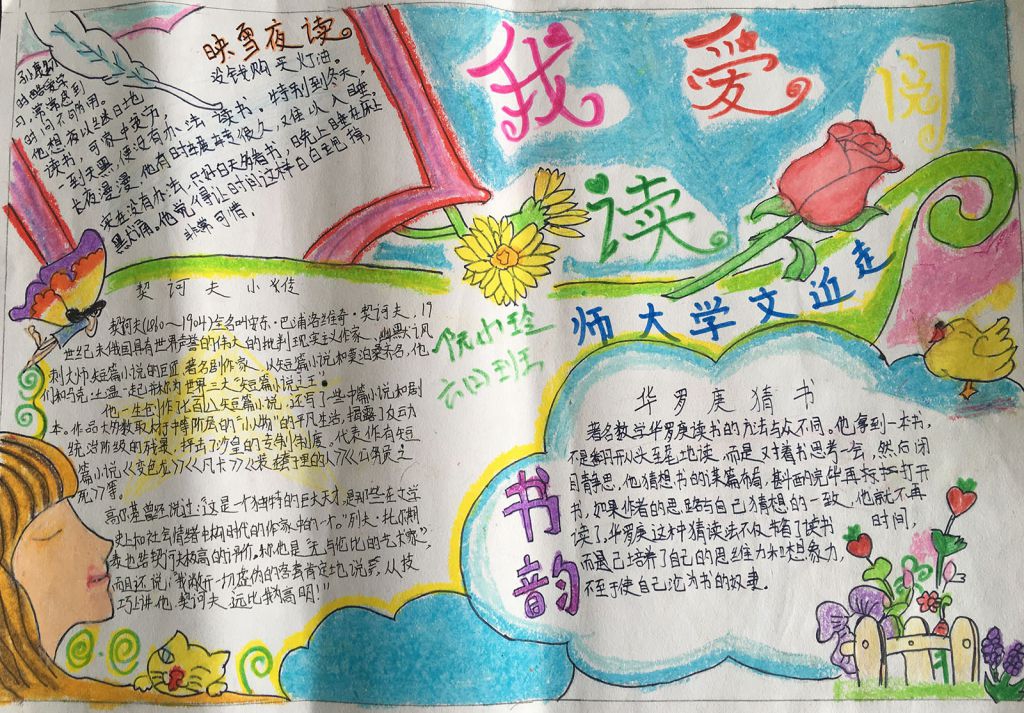 映雪夜读
没钱购买灯油。
时酷爱学
习,常常感到
时间不够用。
他想夜以继日地
读书,可家中贫穷,
一到天黑,便没有办法读书。特别到冬天,
长夜漫漫,他有时辗转很久,难以入睡。
实在没有办法,只好白天多看书,晚上睡在床上
默诵。他觉得让时间这样白白走掉,
非常可惜。
我爱阅
读
师大学文近走
倪小玲
六(1)班
契诃夫小传
契诃夫(1860~1904)全名叫安东·巴浦洛维奇·契诃夫,19
世纪末俄国具有世界声誉的伟大的批判现实主义作家,幽默讽
刺大师,短篇小说的巨匠,著名剧作家。以短篇小说和莫泊桑齐名,他
们和马克·吐温一起并称为世界三大"短篇小说之王"。
他一生创作了七百八短篇小说,还写了一些中篇小说和剧
本。作品大多数取材于中等阶层的"小人物"的平凡生活,揭露了反动
统治阶级的残暴,抨击了沙皇的专制制度。代表作有短
篇小说《变色龙》《凡卡》《装在套子里的人》《公务员之
死》等。
高尔基曾经说过:"这是一个独特的巨大天才,是那些在文学
史上和社会情绪中构成时代的作家中的一个。"列夫·托尔斯
泰也给契诃夫极高的评价,称他是"无与伦比的艺术家",
而且还说:"我撇开一切虚伪的客套肯定地说,从技
巧上讲,他,契诃夫,远比我高明!"
书韵
华罗庚猜书
著名数学华罗庚读书的方法与众不同。他拿到一本书,
不是翻开从头至尾地读,而是对着书思考一会,然后闭
目静思。他猜想书的谋篇布局,斟酌完毕再打开
书,如果作者的思路与自己猜想的一致,他就不再
读了。华罗庚这种猜读法不仅节省了读书时间,
而且培养了自己的思维力和想象力,
不至于使自己沦为书的奴隶。